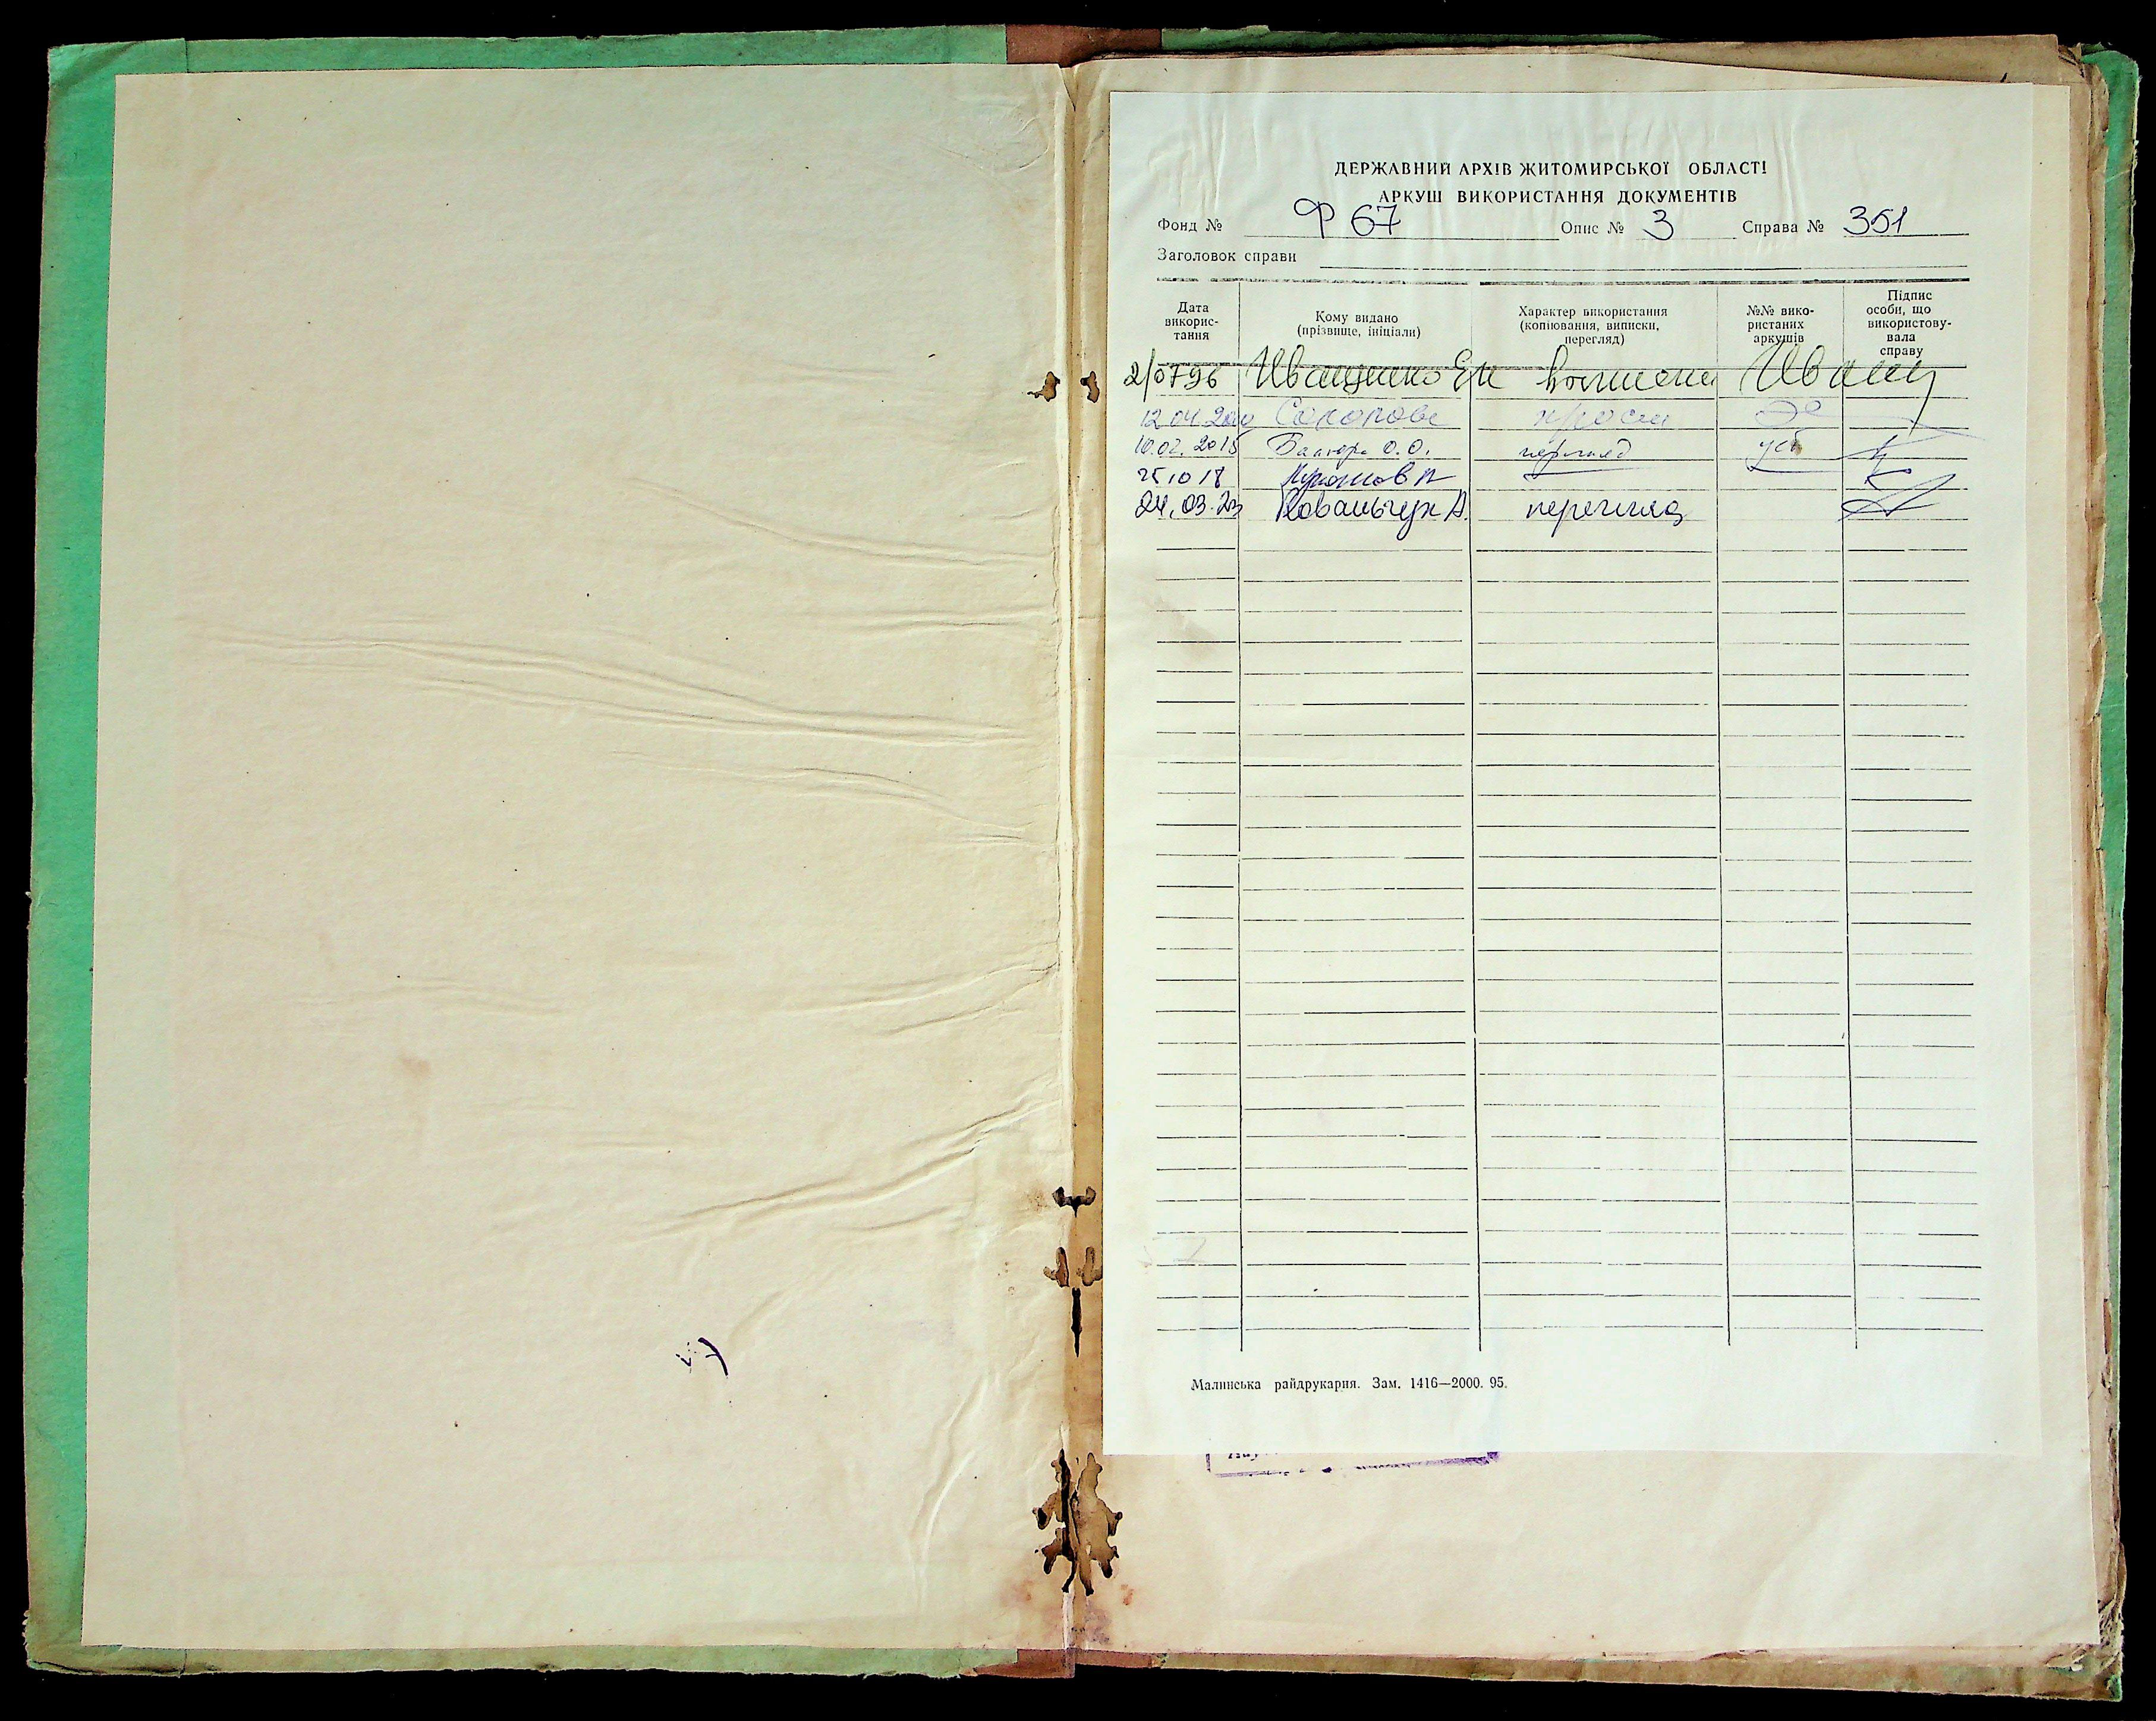 ДЕРЖАВНИЙ АРХІВ ЖИТОМИРСЬКОЇ ОБЛАСТІ
АРКУШ ВИКОРИСТАННЯ ДОКУМЕНТІВ
Фонд № Ф 67 Опис № 3 Справа № 351
Заголовок справи
Дата викорис-тання
Кому видано (прізвище, ініціали)
Характер використання (копіювання, виписки, перегляд)
№№ вико-ристаних аркушів
Підпис особи, що використову-вала справу
2/07 96 Иващенко
12 04 2000
10.02.2015 О.О. перегляд
25 10 18
24.03.23 Ковальчук А. перегляд
Малинська райдрукарня. Зам. 1416—2000. 95.